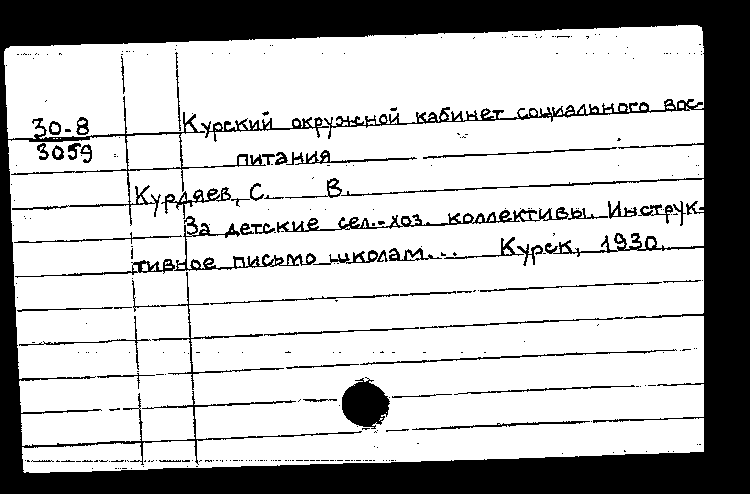 30-8
3059
Курский окружной кабинет социального вос-
питания
Курдяев, С. В.
За детские сел.-хоз. коллективы. Инструк-
тивное письмо школам... Курск, 1930.